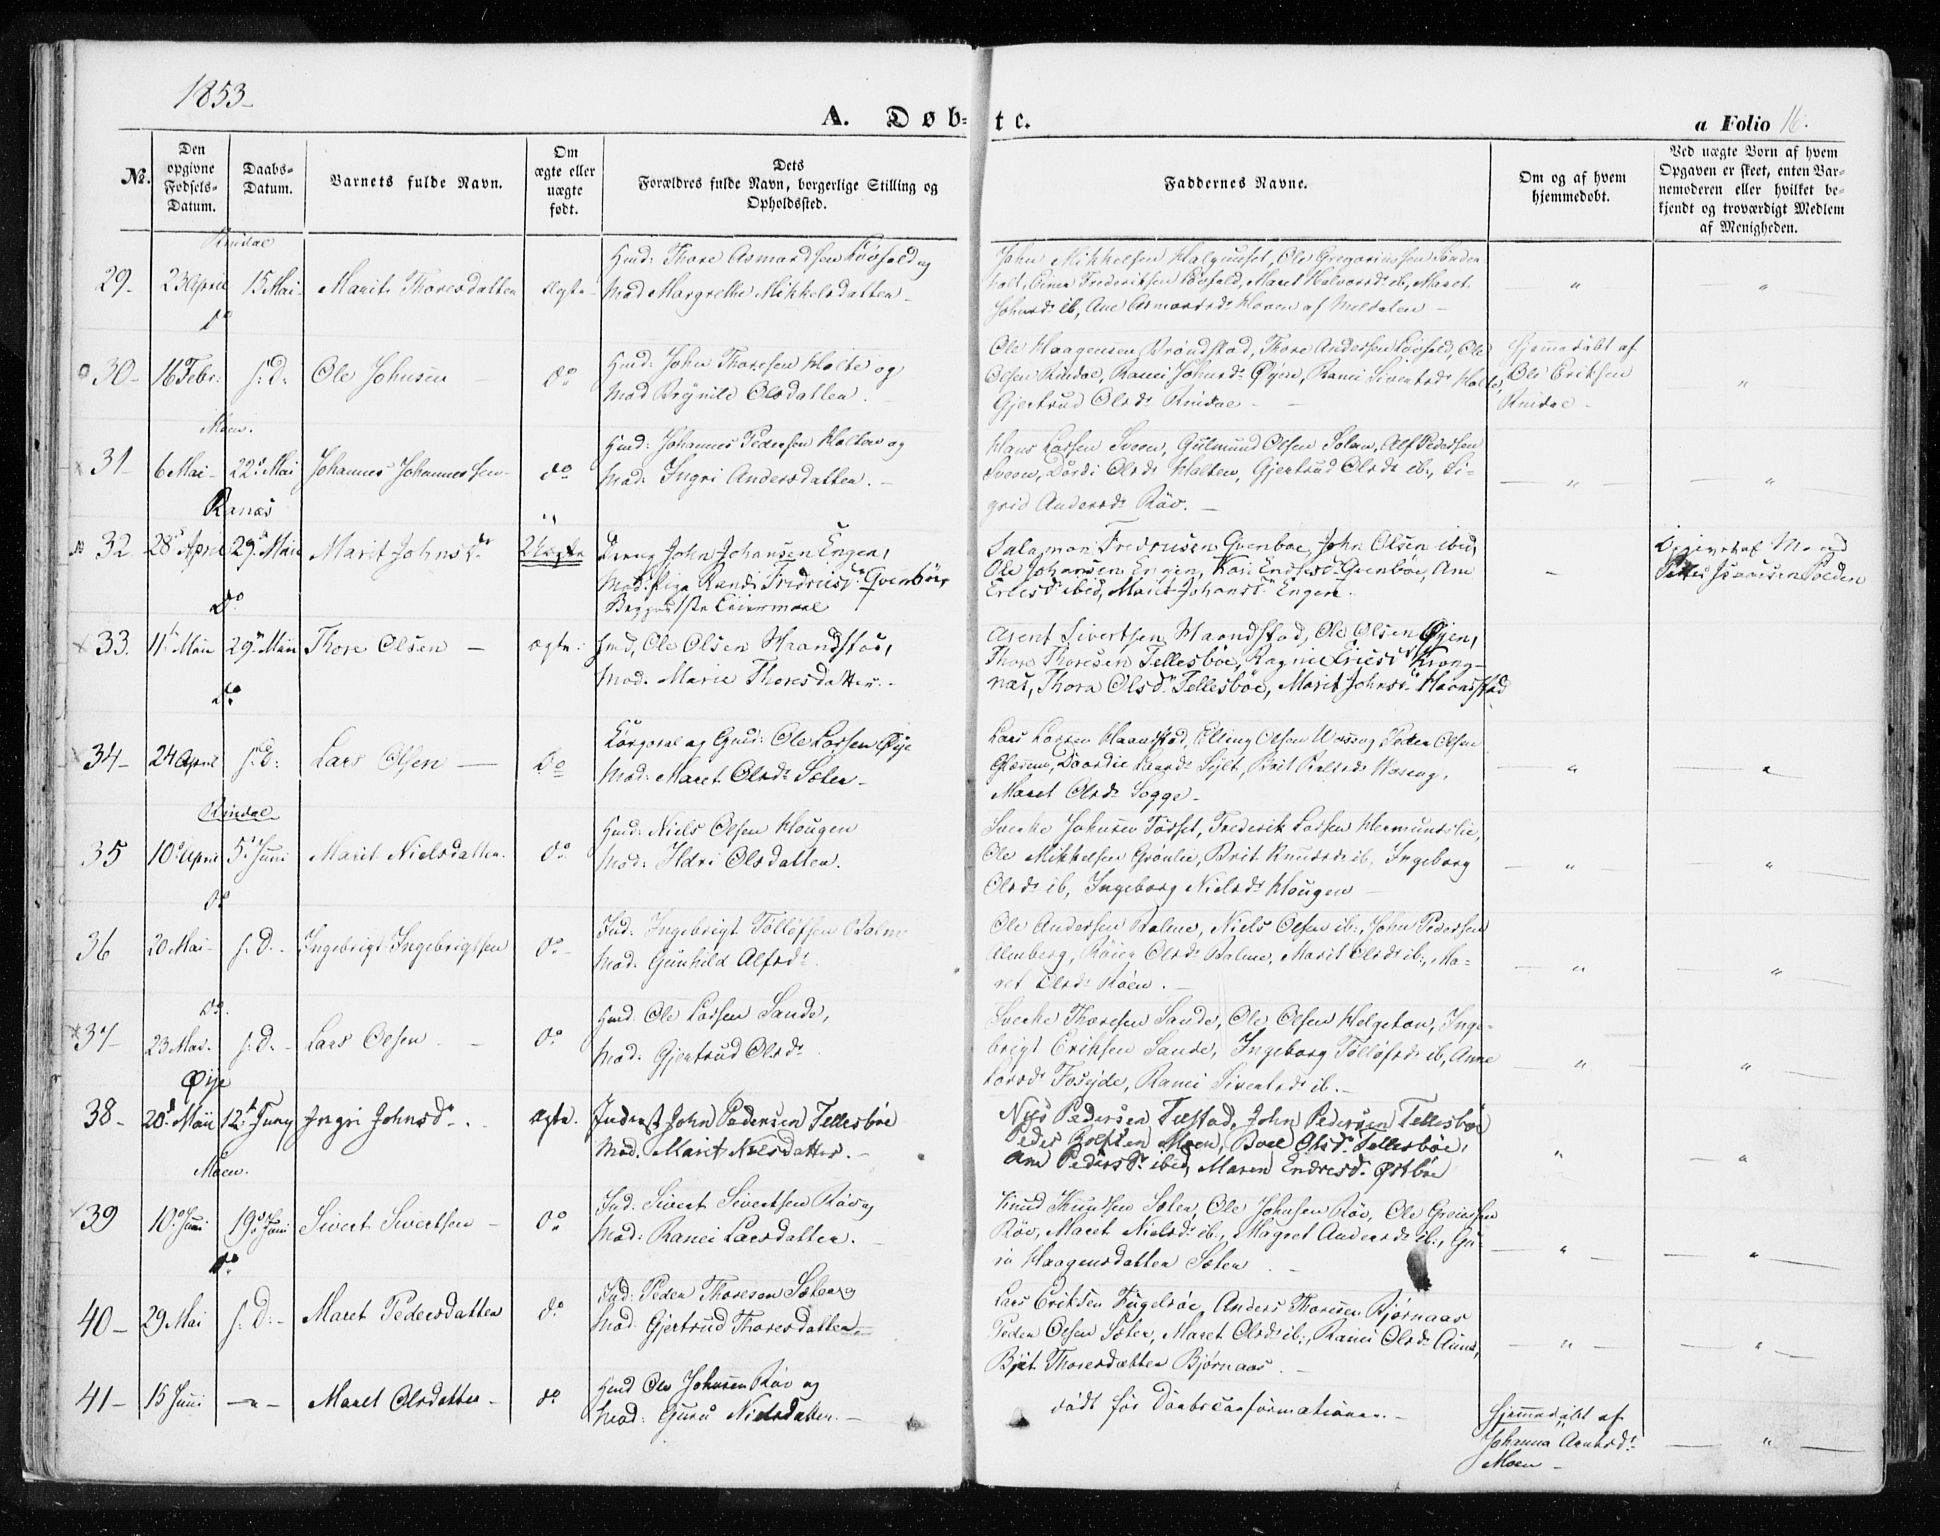 1853
A. Døb-
te.
a Folio 16.
No.
Den opgivne Fødsels-Datum.
Daabs-Datum.
Barnets fulde Navn.
Om ægte eller uægte født.
Dets Forældres fulde Navn, borgerlige Stilling og Opholdssted.
Faddernes Navne.
Om og af hvem hjemmedøbt.
Ved uægte Børn af hvem Opgaven er skeet, enten Barnemoderen eller hvilket bekjendt og troværdigt Medlem af Menigheden.
Rindal
29- 23 April 15 Mai- Marit Thoresdatten ægte-
Gmd: Thore Asmordsen Løvfald og
Mod Margrethe Mikkelsdatten-
John Mikkelsen Halgunset, Ole Gregoriussen
Einer Frederiksen Løvfald, Maret Halvorsdr ib, Maret
Johnsdr ib, Ane Asmordsdr Hoven af Meldalen -
do
30- 16 Febr: s: D: Ole Johnsen - do
Gmd: John Thoresen Holte og
Mod Brynild Olsdatten. -
Ole Haagensen Brøndstad, Thore Andersen Løvfald, Ole
Olsen Rindal, Ranei Johnsdr Øyen, Ranei Sivertsdr Holte,
Gjertrud Olsdr Rindal - -
Hjemmedøbt af
Ole Eriksen
Rindal -
Moen.
31- 6 Mai- 22 Mai Johannes Johannessen- do
Gmd: Johannes Pedersen Holten og
Mod: Ingri Andersdatten. -
Hans Larsen Sveen, Gulmund Olsen Solem, Alf Pedersen
Sveen, Dordi Olsdr Holten, Gjertrud Olsdr ib:, Si-
grid Andersdr Røv. -
Ranæs
32. 28 April 29 Maii Marit Johnsdr Uægte
Dreng John Johansen Engen,
Mod: Pige Randi Fredriksdr Gvenbøe
Begges 1ste Leiermaal
Salamon Fredriksen Gvenbøe, John Olsen ibid,
Ole Johansen Engen, Kari Endresdr Gvenbøe, Ane
Ericsd ibid, Marit Johansdr Engen.
do
33. 11 Maii 29 Maii Thore Olsen - ægte:
Gmd, Ole Olsen Haandstad,
Mod. Marie Thoresdatter. -
Arent Sivertsen Haandstad, Ole Olsen Øyen,
Thore Thoresen Tellesbøe, Ragnil Ericsdr Krong-
næs, Thora Olsdr Tellesbøe, Marit Johnsdr Haandstad
do
34- 24 April s: D: Lars Olsen - do
Korporal og Gmd: Ole Larsen Øye
Mod: Maret Olsdr Sæter -
Lars Larsen Haandstad, Elling Olsen Peder Olsen
Maret Olsdr Sogge -
Rindal
35 10 April 5 Juni Marit Nielsdatten. do
Gmd: Niels Olsen Hougen
Mod: Ildri Olsdatten.
Sverke Johnsen Tørset, Frederik Larsen Hermundslie,
Ole Mikkelsen Grønlie, Brit Knudsdr ib, Ingeborg
Olsdr ib, Ingeborg Nielsdr Hougen -
do
36 20 Mai- s: D. - Ingebrigt Ingebrigtsen do -
Ind: Ingebrigt Tølløfsen Bolme
Mod: Gunhild Alfsdr
Ole Andersen Bolme, Niels Olsen ib:, John Pedersen
Almberg, Olsdr Bolme, Marit Olsdr ib:, Ma-
ret Olsdr Røen. -
do.
37- 23 Mai. s: D. - Lars Olsen - do
Gmd: Ole Larsen Sande,
Mod: Gjertrud Olsdr
Sverke Thoresen Sande, Ole Olsen Helgetun, Inge-
brigt Eriksen Sande, Ingeborg Tølløfsdr ib, Anne
Larsdr Foseide, Ranei Sivertsdr ib. -
Øije
38- 20 Maii 12 Juny Ingri Johnsdr - . ægte.
Inderst John Pedersen Tellesbøe
Mod. Marit Nilsdatter. -
Nils Pedersen Talstad, John Pedersen Tellesbøe
Peder Moen, Boel Olsdr Tellesbøe,
Ane Pedersdr ibid, Maren Endresdr Østbøe
Moen.
39 10 Juni 19 Juni Sivert Sivertsen - do
Ind: Sivert Sivertsen Røv og
Mod: Ranei Larsdatten. -
Knud Knudsen Sæter, Ole Johnsen Røv, Ole
Røv, Maret Nielsdr ib:, Magret Andersdr ib:, Gu-
ri Haagensdatten Sæter -
do
40- 29 Mai s: D: - Maret Pedersdatten do
Ind: Peder Thoresen Sæter og
Mod: Gjertrud Thoresdatten -
Lars Eriksen Fugelsøe, Anders Thoresen Bjørnaas
Peder Olsen Sæter, Maret Olsdr ib:, Ranei Olsdr Aune,
Brit Thoresdatten Bjørnaas. -
41- 15 Juni -"- Maret Olsdatter - do
Gmd Ole Johnsen Røv og
Mod: Guru Nielsdatter. -
død før Daabsconfirmationen. -
Hjemmedøbt af
Johanna Arntsdr
Moen -